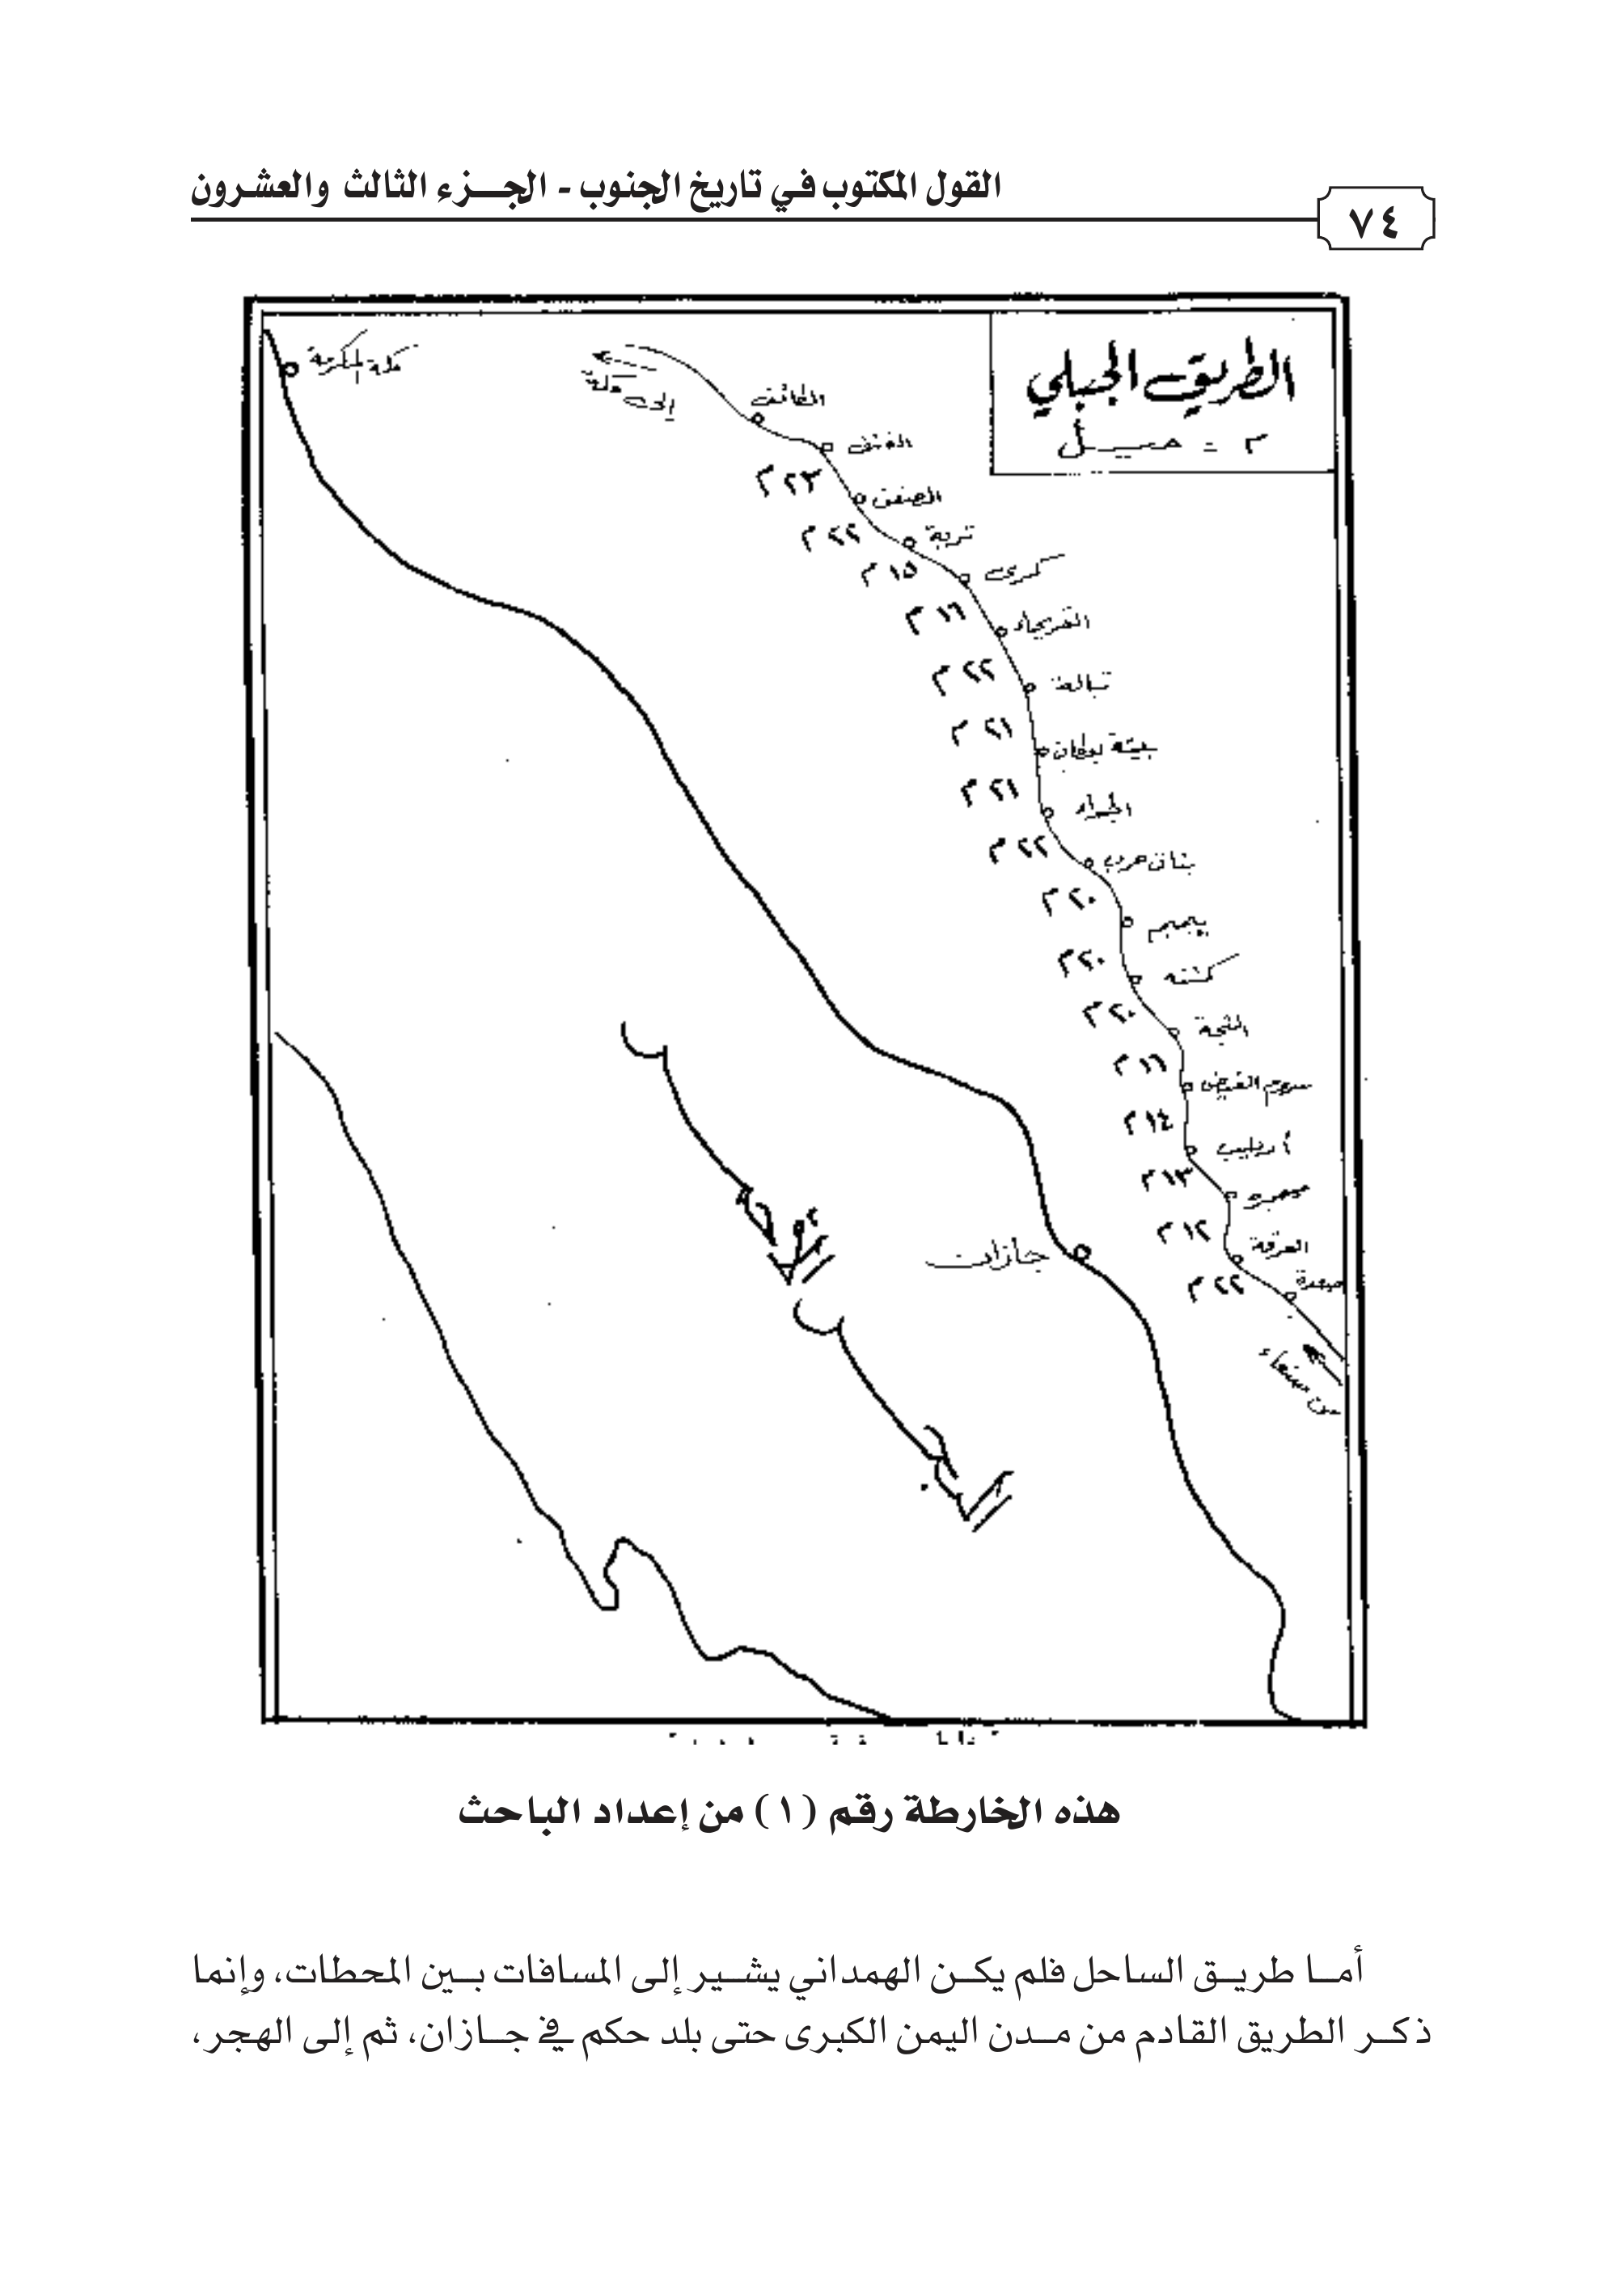 القول المكتوب في تاريخ الجنوب - الجـــزء الثالث والعشرون
٧٤
الطريق الجبلي
م = ميـــل
مكة المكرمة
إلى مكة
الطائف
الفتق
٢٣ م
الصفن
٢٢ م
تربة
١٥ م
كرى
١٦ م
القريحاء
٢٢ م
تبالة
٢١ م
بيشة بعطان
٢١ م
الجسداء
٢٢ م
بنات حرب
٢٠ م
يبمبم
٢٠ م
كتنه
٢٠ م
الثجة
١٦ م
سروم الفيض
١٤ م
أرينب
١٣ م
١٢ م
العرقة
٢٢ م
صعدة
من صنعاء
جازان
البحر الأحمر
هذه الخارطة رقم (١) من إعداد الباحث
أمــا طريــق الساحل فلم يكــن الهمداني يشــير إلى المسافات بــين المحطات، وإنما
ذكــر الطريق القادم من مــدن اليمن الكبرى حتى بلد حكم في جــازان، ثم إلى الهجر،